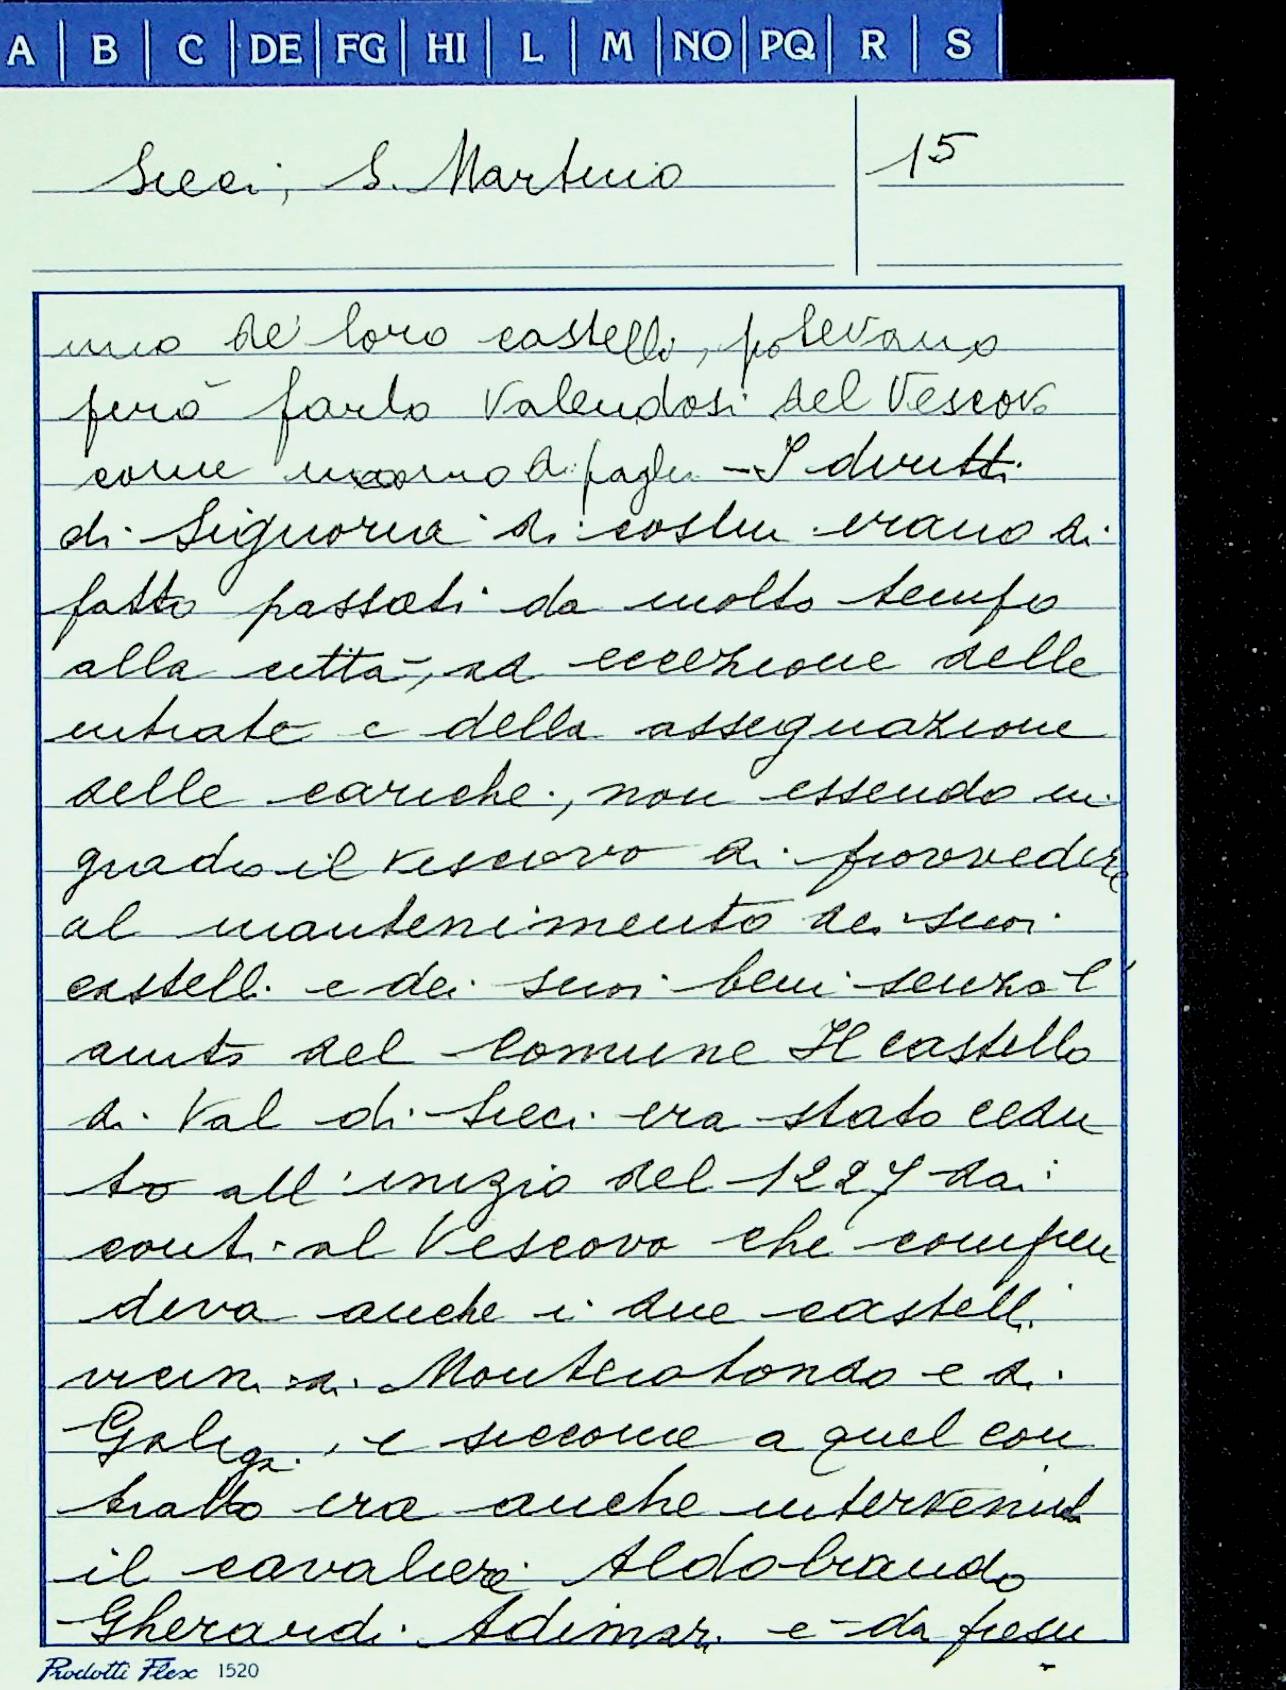 A B C DE FG HI L M NO PQ R S
Sieci, S. Martino 15
uno de' loro castelli, potevano
però farlo valendosi del Vescovo
come uomo di paglia - I diritti
di Signoria di costui erano di
fatto passati da molto tempo
alla città, ad eccezione delle
entrate e della assegnazione
delle cariche, non essendo in
grado il vescovo di provvedere
al mantenimento dei suoi
castelli e dei suoi beni senza l'
aiuto del Comune Il castello
di Val di Sieci era stato cedu
to all'inizio del 1227 dai
conti al Vescovo che compren
deva anche i due castelli
vicini di Monterotondo e di
Galiga, e siccome a quel con
tratto era anche intervenuto
il cavaliere Aldobrando
Gherardi Adimari e da presu
Prodotti Flex 1520